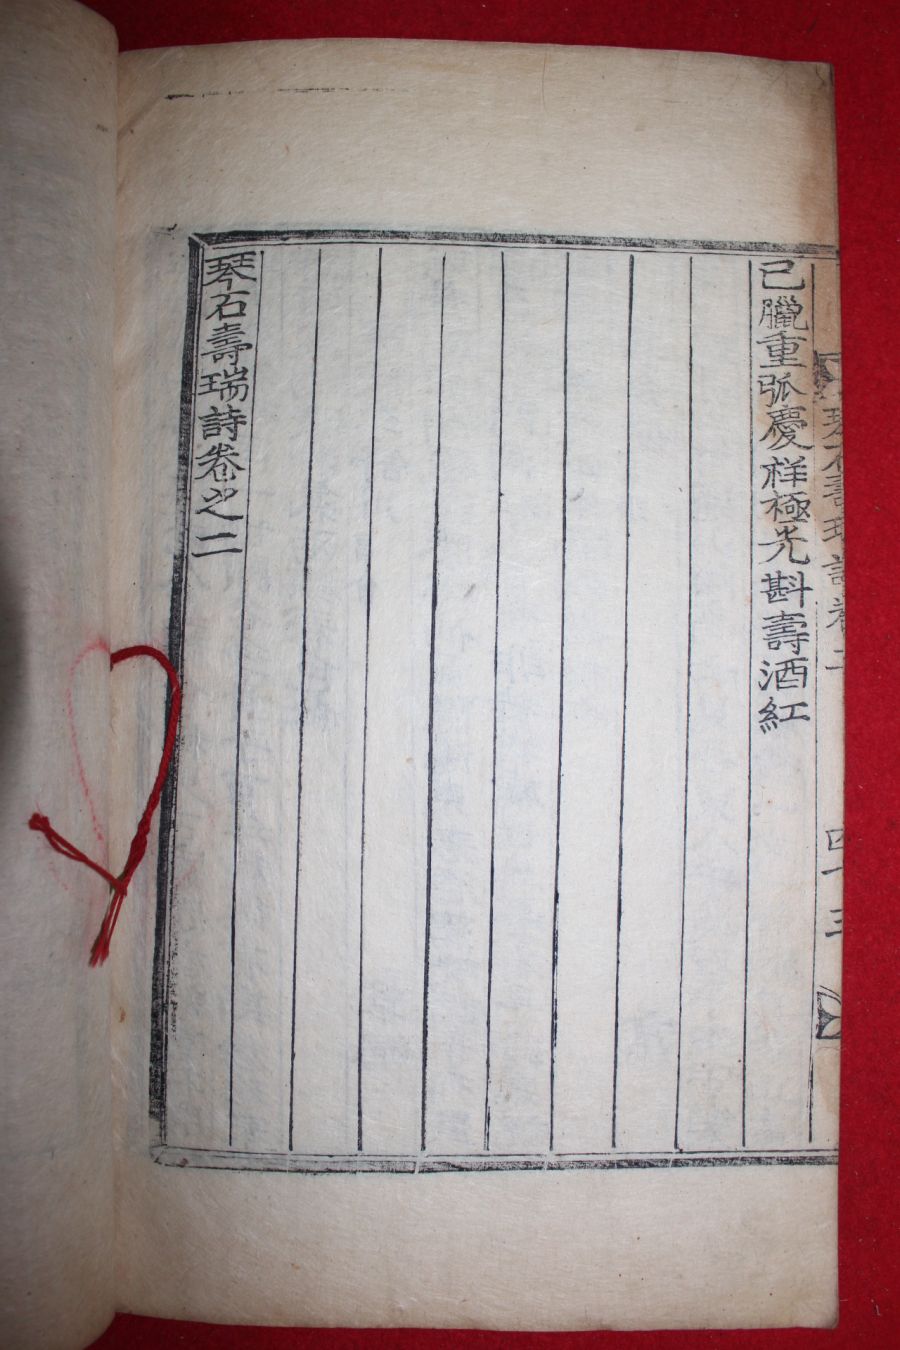 琴石壽瑞詩卷二
四十三
已臘重弧慶祥極先斟壽酒紅
琴石壽瑞詩卷之二